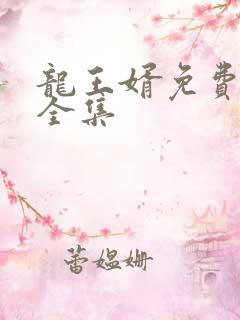 龍王婿免費
全集
蕾媪姗